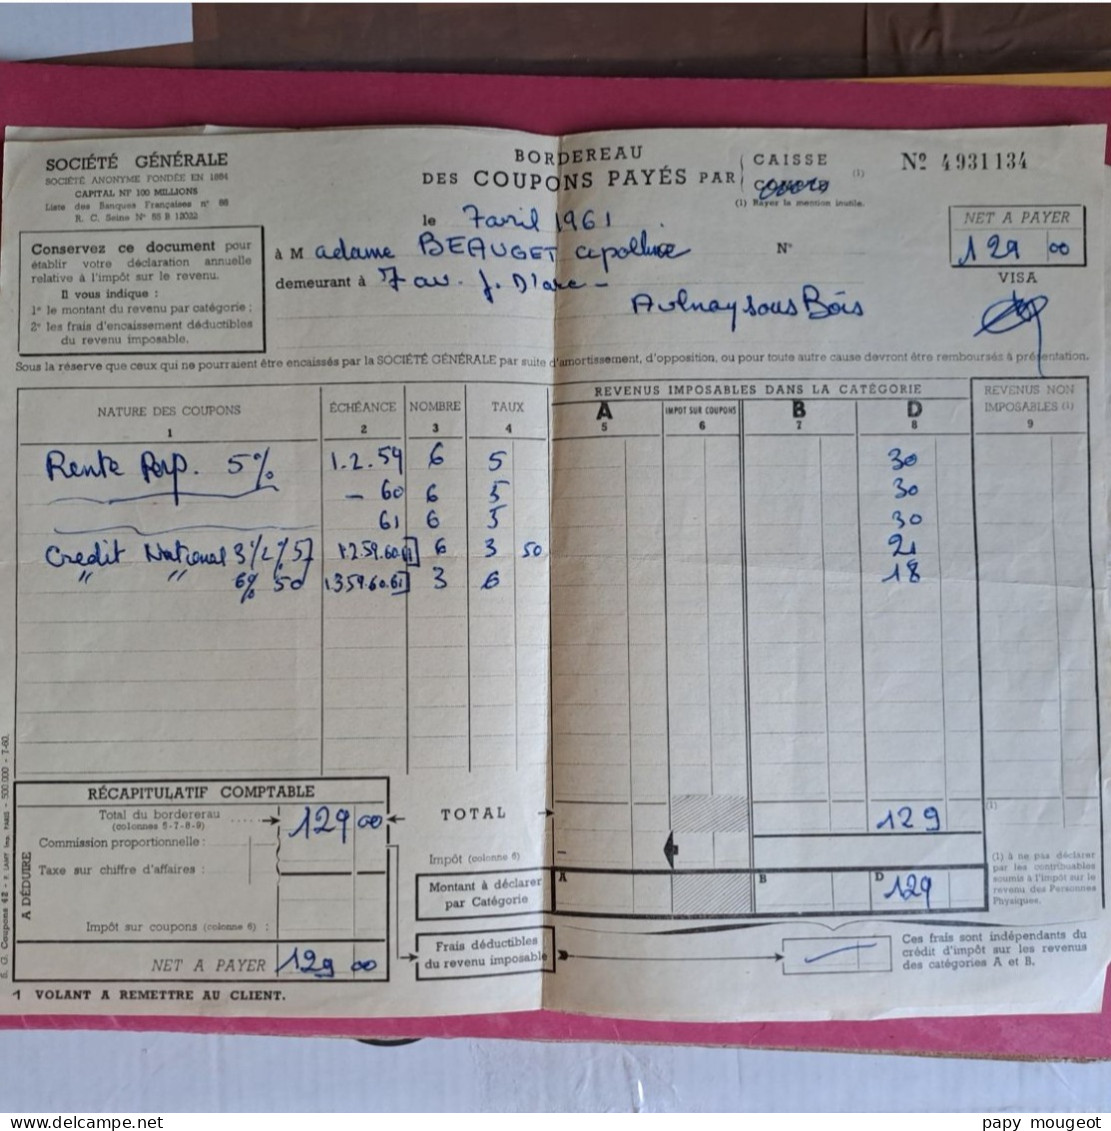 SOCIÉTÉ GÉNÉRALE
SOCIÉTÉ ANONYME FONDÉE EN 1864
CAPITAL NF 100 MILLIONS
Liste des Banques Françaises n° 66
R. C. Seine N° 55 B 12032
BORDEREAU
DES COUPONS PAYÉS PAR
CAISSE (1)
(1) Rayez la mention inutile.
Nº 4931134
le 7 avril 1961
à Madame BEAUGET Apolline N°
demeurant à 7 av. J. D'arc -
Aulnay sous Bois
NET A PAYER
129 00
VISA
Conservez ce document pour
établir votre déclaration annuelle
relative à l'impôt sur le revenu.
Il vous indique :
1° le montant du revenu par catégorie ;
2° les frais d'encaissement déductibles
du revenu imposable.
Sous la réserve que ceux qui ne pourraient être encaissés par la SOCIÉTÉ GÉNÉRALE par suite d'amortissement, d'opposition, ou pour toute autre cause devront être remboursés à présentation.
REVENUS IMPOSABLES DANS LA CATÉGORIE
NATURE DES COUPONS ÉCHÉANCE NOMBRE TAUX A IMPOT SUR COUPONS B D REVENUS NON IMPOSABLES (1)
1 2 3 4 5 6 7 8 9
Rente Perp. 5% 1.2.59 6 5 30
- 60 6 5 30
61 6 5 30
Credit National 3 1/2 % 57 1.2 59.60.61 6 3 50 21
" " 6% 50 1.3 59.60.61 3 6 18
RÉCAPITULATIF COMPTABLE
Total du bordererau 129 00
(colonnes 5-7-8-9)
Commission proportionnelle :
Taxe sur chiffre d'affaires :
A DÉDUIRE
Impôt sur coupons (colonne 6) :
NET A PAYER 129 00
TOTAL 129
Impôt (colonne 6) —
Montant à déclarer
par Catégorie
A B D 129
Frais déductibles
du revenu imposable
(1)
(1) à ne pas déclarer
par les contribuables
soumis à l'impôt sur le
revenu des Personnes
Physiques.
Ces frais sont indépendants du
crédit d'impôt sur les revenus
des catégories A et B.
1 VOLANT A REMETTRE AU CLIENT.
S. G. Coupons 42 - P. LAINY Imp. PARIS - 500.000 - 7-60.
delcampe.net
papy mougeot